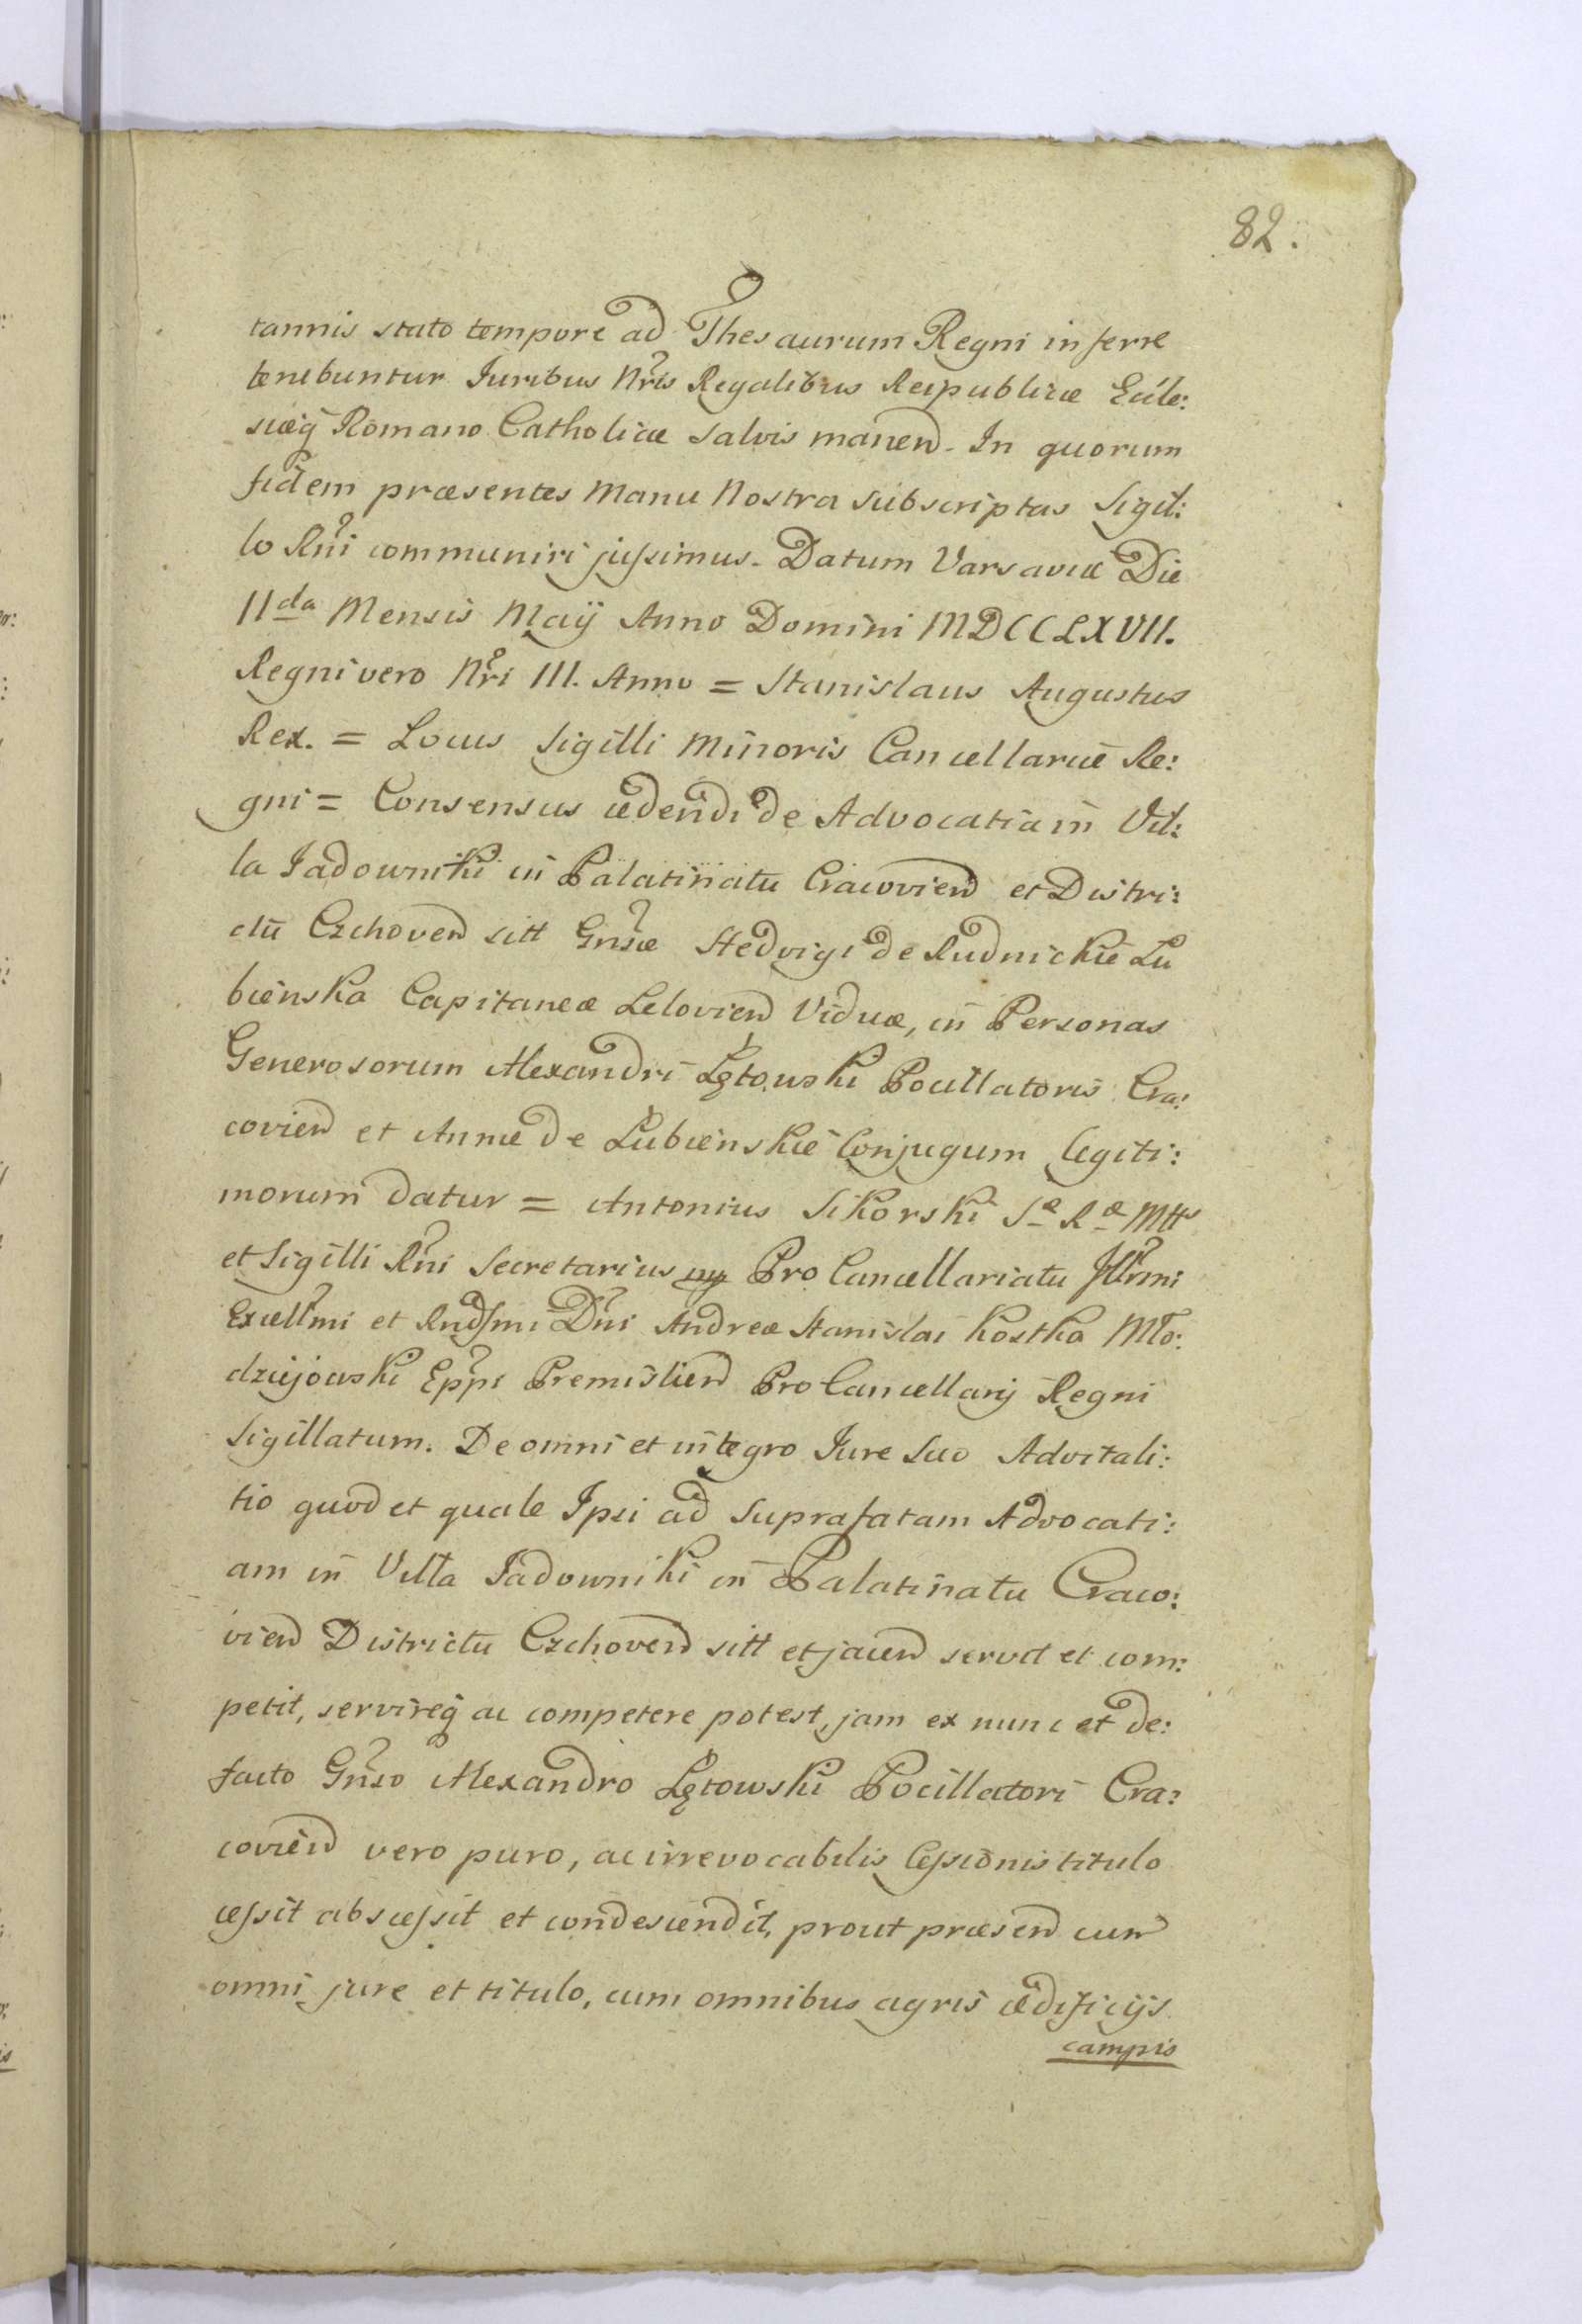 82.
tannis stato tempore ad Thesaurum Regni inferre
tenebuntur Juribus Nris Regalibus Reipublicæ Eccle:
siæq Romano Catholicæ salvis manen. In quorum
fidem præsentes Manu Nostra subscriptas Sigil:
lo Rni communiri jussimus. Datum Varsaviæ Die
IIda Mensis Maij Anno Domini MDCCLXVII.
Regni vero Nri III. Anno = Stanislaus Augustus
Rex. = Locus Sigilli Minoris Cancellariæ Re:
gni = Consensus cedendi de Advocatia in Vil:
la Jadowniki in Palatinatu Cracovien et Distri:
ctu Czchoven sitt Gnsæ Hedvigi de Rudnickie Łu
bienska Capitaneæ Lelovien Viduæ, in Personas
Generosorum Alexandri Łętowski Pocillatoris Cra:
covien et Annæ de Łubienskie Conjugum legiti:
morum datur = Antonius Sikorski Sæ Ræ Mttis
et Sigilli Rni Secretarius mp Pro Cancellariatu Jllrmi
Excellmi et Rndsmi Dni Andreæ Stanislai Kostka Mło:
dziejowski Eppi Premislien Pro Cancellarij Regni
Sigillatum. De omni et integro Jure suo Advitali:
tio quod et quale Ipsi ad suprafatam Advocati:
am in Villa Jadowniki in Palatinatu Craco:
vien Districtu Czchoven sitt et jacen servit et com:
petit, servireq ac competere potest, jam ex nunc et de:
facto Gnso Alexandro Łętowski Pocillatori Cra:
covien vero puro, ac irrevocabilis Cessionis titulo
cessit abscessit et condescendit, prout præsen cum
omni jure et titulo, cum omnibus agris ædificijs
campis